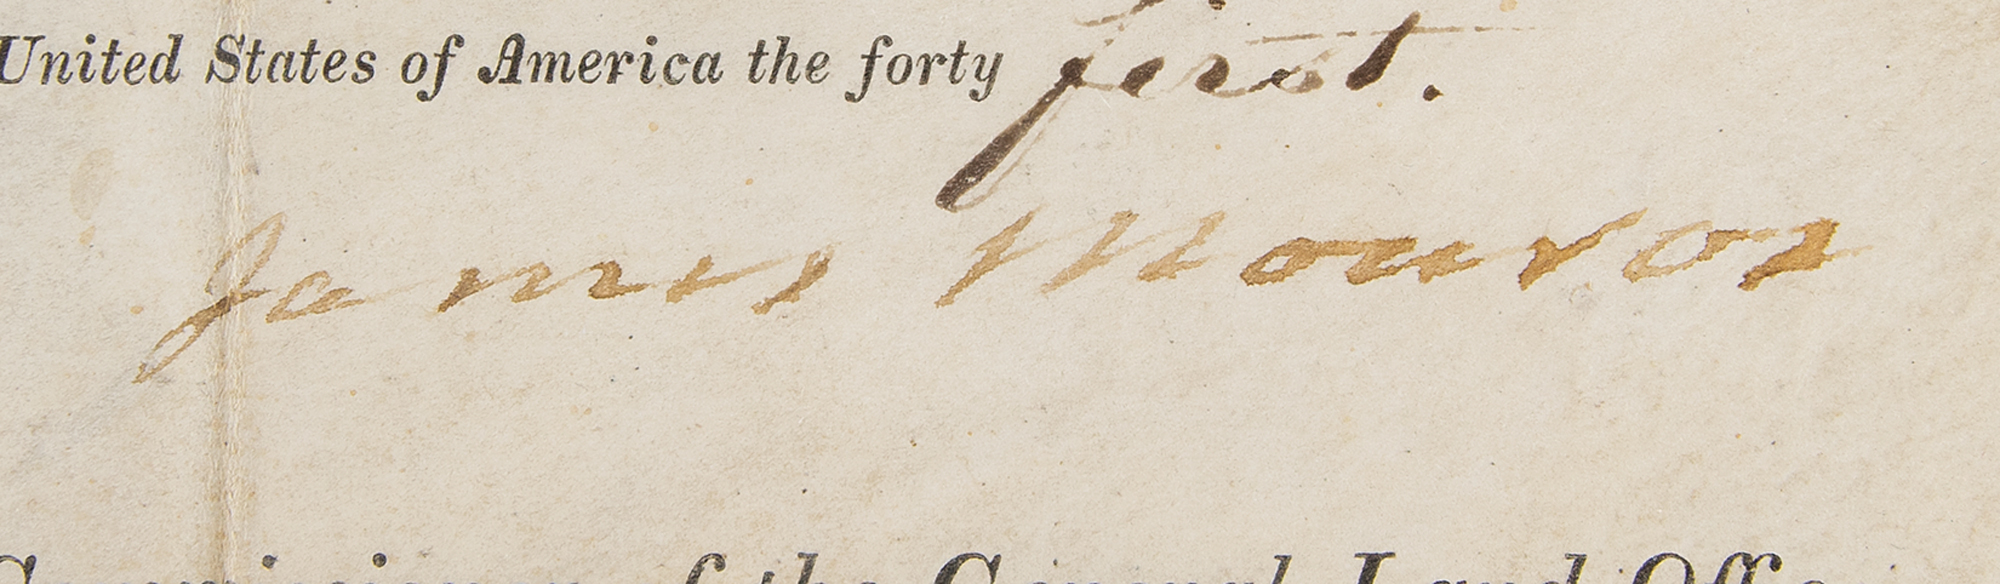 United States of America the forty first.
James Monroe
Commissioner of the General Land Office